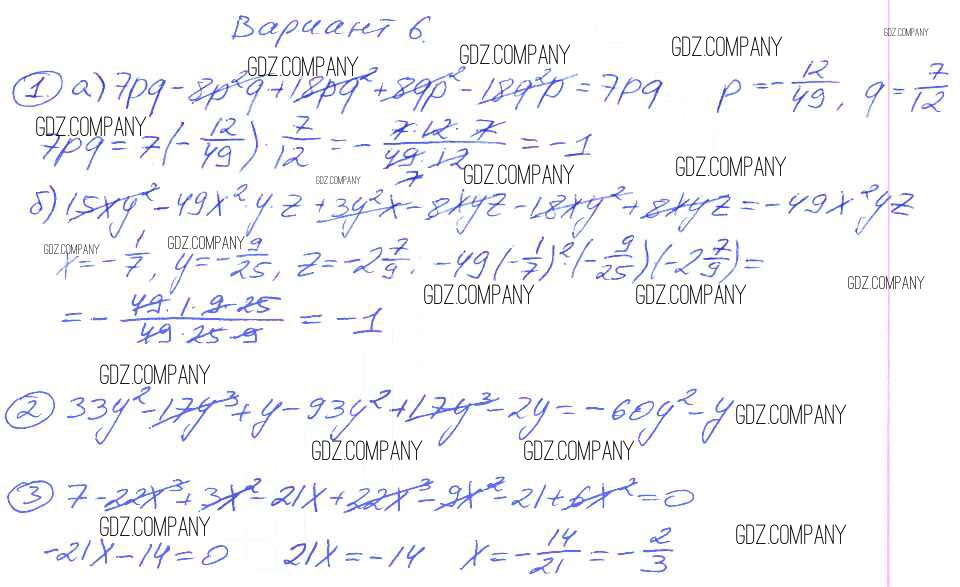 Вариант 6.
GDZ.COMPANY
GDZ.COMPANY GDZ.COMPANY GDZ.COMPANY
1. а) 7pq - 8p²q + 18pq² + 8qp² - 18q²p = 7pq p = -12/49, q = 7/12
GDZ.COMPANY
7pq = 7(-12/49)·7/12 = -7·12·7/49·12 = -1
7
GDZ.COMPANY GDZ.COMPANY GDZ.COMPANY
б) 15xy² - 49x²·y·z + 3y²x - 8xyz - 18xy² + 8xyz = -49x²yz
GDZ.COMPANY GDZ.COMPANY
x = -1/7, y = -9/25, z = -2 7/9. -49(-1/7)²·(-9/25)(-2 7/9) =
GDZ.COMPANY GDZ.COMPANY GDZ.COMPANY
= -49·1·9·25/49·25·9 = -1
GDZ.COMPANY
2 33y² - 17y³ + y - 93y² + 17y³ - 2y = -60y² - y
GDZ.COMPANY
GDZ.COMPANY GDZ.COMPANY
3 7 - 22x³ + 3x² - 21x + 22x³ - 9x² - 21 + 6x² = 0
GDZ.COMPANY GDZ.COMPANY
-21x - 14 = 0 21x = -14 x = -14/21 = -2/3